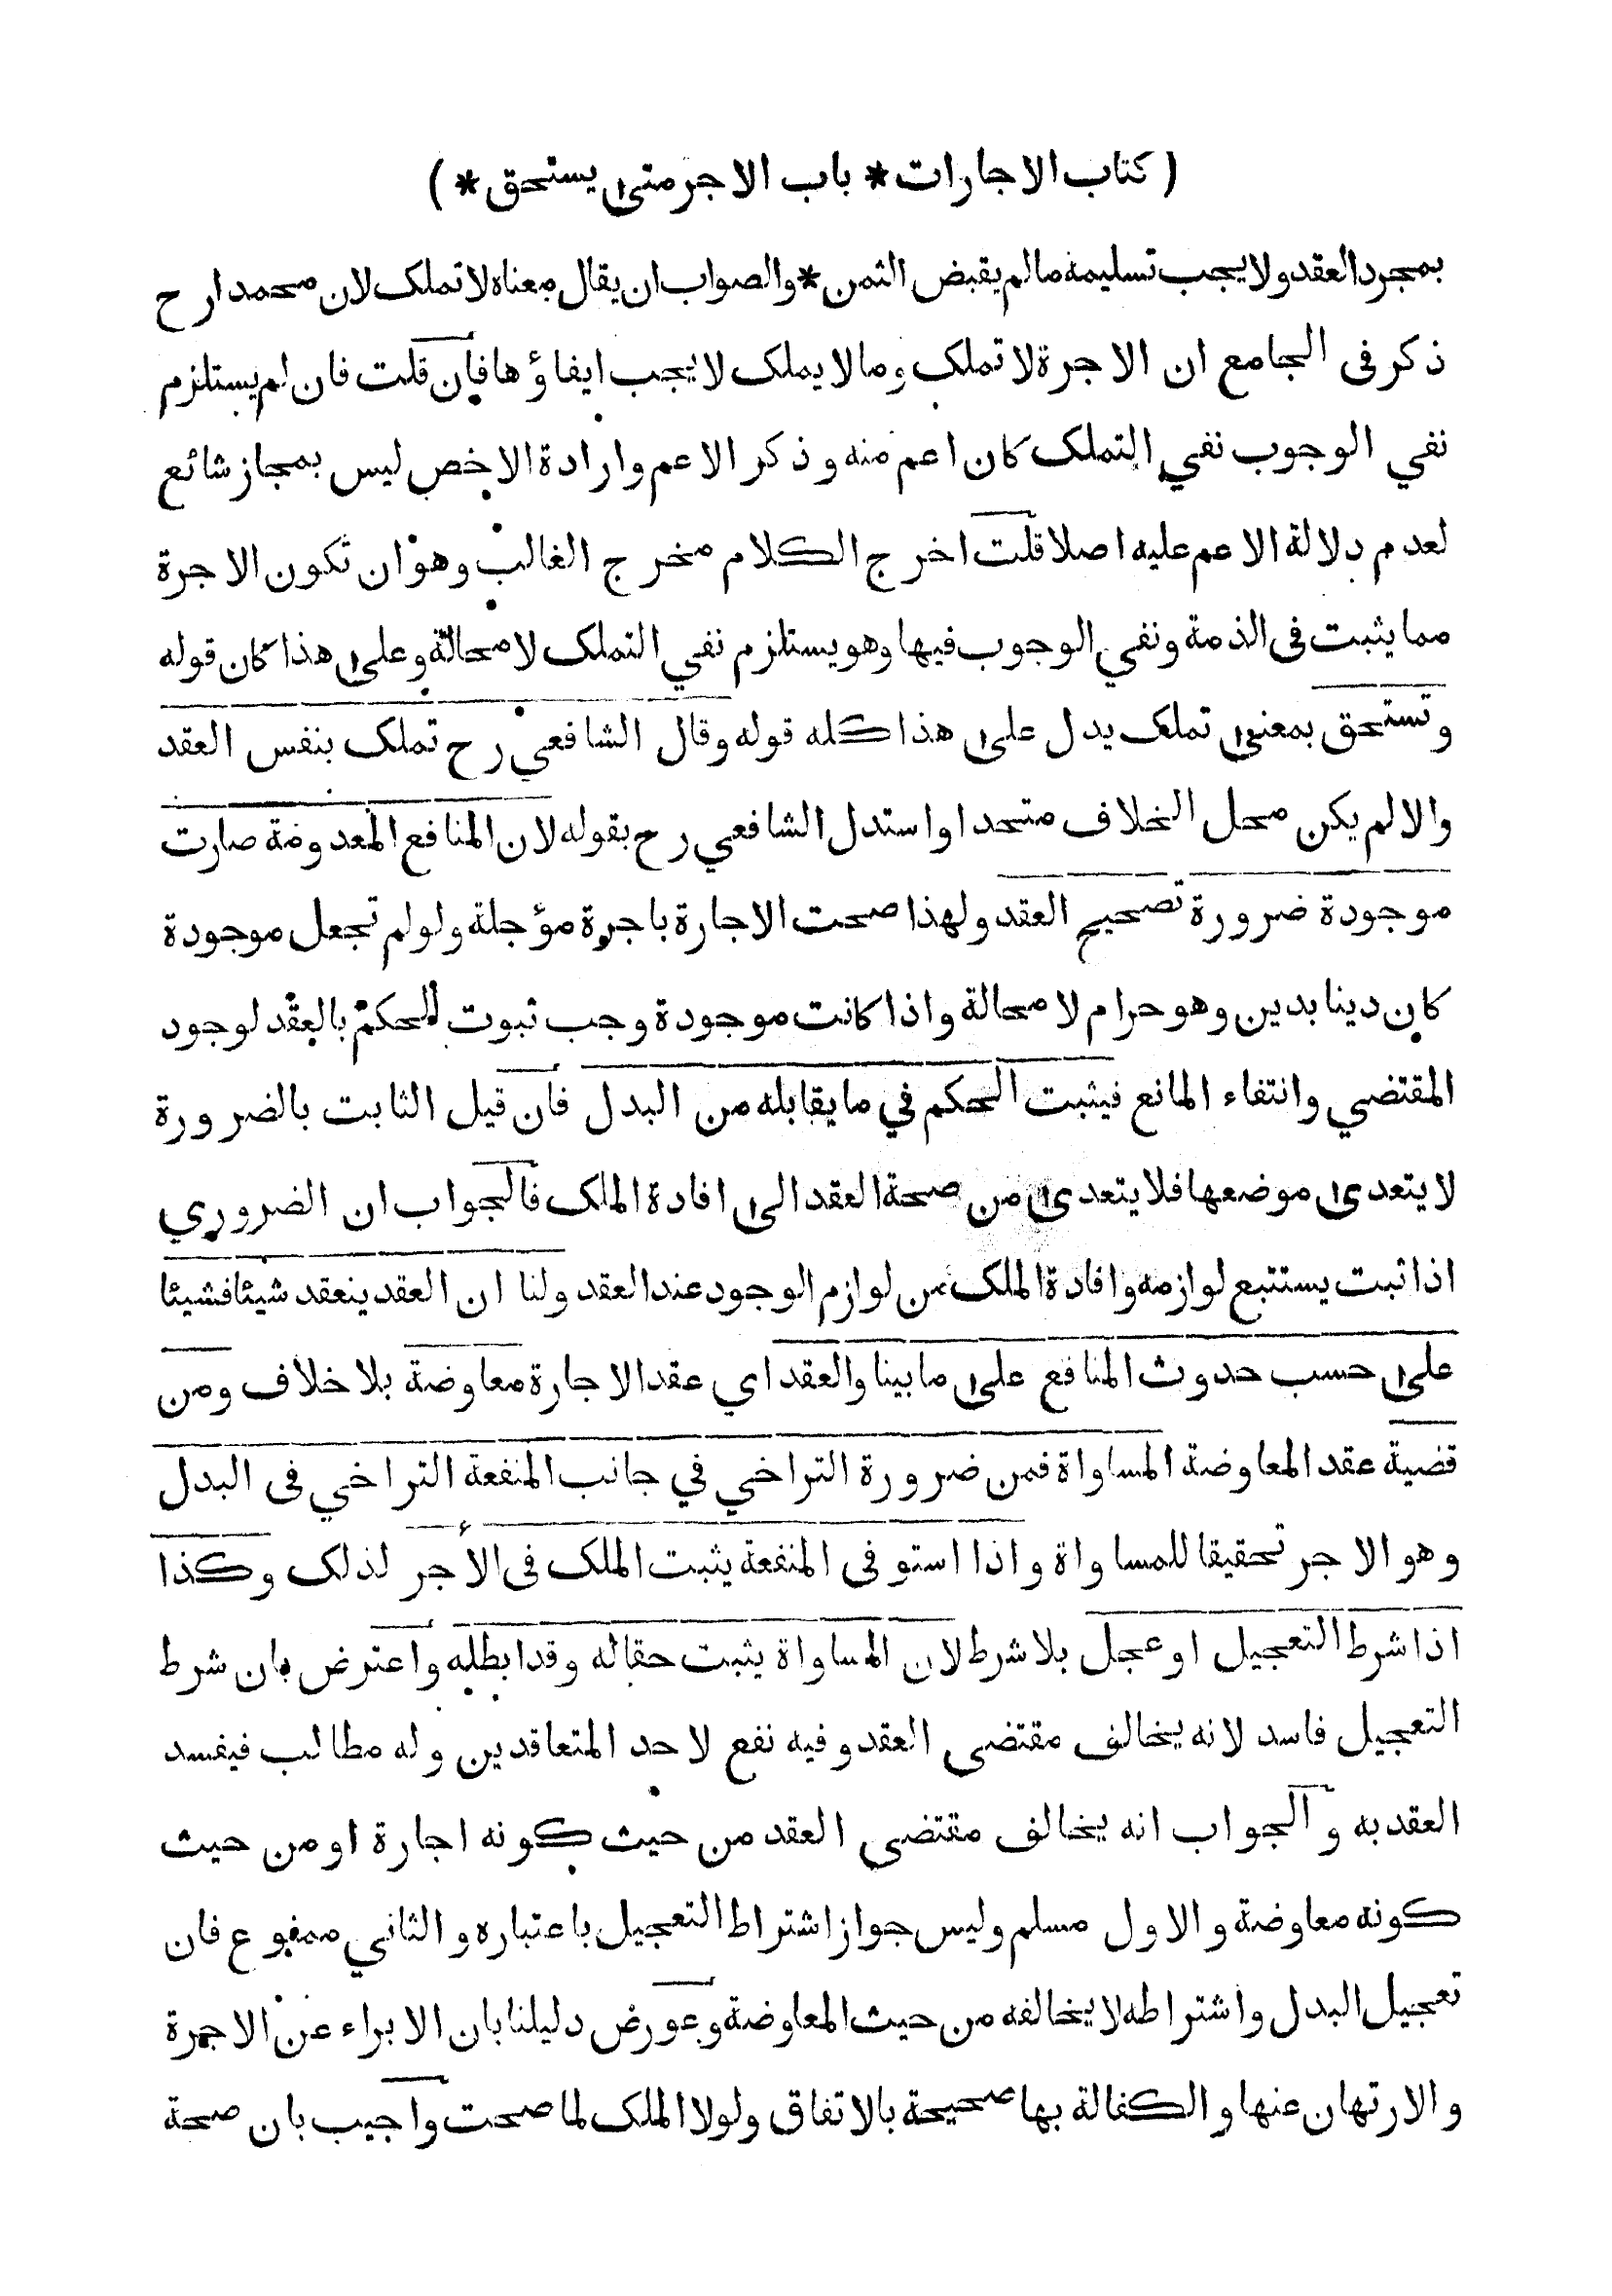 ( كتاب الاجارات * باب الاجر متى يستحق * )
بمجرد العقد ولا يجب تسليمه مالم يقبض الثمن * والصواب ان يقال معناه لا تملك لان محمدا رح
ذكر في الجامع ان الاجرة لا تملك وما لا يملك لا يجب ايفاؤها فان قلت فان لم يستلزم
نفي الوجوب نفي التملك كان اعم منه وذكر الاعم وارادة الاخص ليس بمجاز شائع
لعدم دلالة الاعم عليه اصلا قلت اخرج الكلام مخرج الغالب وهو ان تكون الاجرة
مما يثبت في الذمة ونفي الوجوب فيها وهو يستلزم نفي التملك لا محالة وعلى هذا كان قوله
وتستحق بمعنى تملك يدل على هذا كله قوله وقال الشافعي رح تملك بنفس العقد
والا لم يكن محل الخلاف متحدا واستدل الشافعي رح بقوله لان المنافع المعدومة صارت
موجودة ضرورة تصحيح العقد ولهذا صحت الاجارة باجرة مؤجلة ولو لم تجعل موجودة
كان دينا بدين وهو حرام لا محالة واذا كانت موجودة وجب ثبوت الحكم بالعقد لوجود
المقتضي وانتفاء المانع فيثبت الحكم في ما يقابله من البدل فان قيل الثابت بالضرورة
لا يتعدى موضعها فلا يتعدى من صحة العقد الى افادة الملك فالجواب ان الضروري
اذا ثبت يستتبع لوازمه وافادة الملك من لوازم الوجود عند العقد ولنا ان العقد ينعقد شيئا فشيئا
على حسب حدوث المنافع على ما بينا والعقد اي عقد الاجارة معاوضة بلا خلاف ومن
قضية عقد المعاوضة المساواة فمن ضرورة التراخي في جانب المنفعة التراخي في البدل
وهو الاجر تحقيقا للمساواة واذا استوفى المنفعة يثبت الملك في الأجر لذلك وكذا
اذا شرط التعجيل او عجل بلا شرط لان المساواة يثبت حقا له وقد ابطله واعترض بان شرط
التعجيل فاسد لانه يخالف مقتضى العقد وفيه نفع لاحد المتعاقدين وله مطالب فيفسد
العقد به والجواب انه يخالف مقتضى العقد من حيث كونه اجارة او من حيث
كونه معاوضة والاول مسلم وليس جواز اشتراط التعجيل باعتباره والثاني ممنوع فان
تعجيل البدل واشتراطه لا يخالفه من حيث المعاوضة وعورض دليلنا بان الابراء عن الاجرة
والارتهان عنها والكفالة بها صحيحة بالاتفاق ولولا الملك لما صحت واجيب بان صحة